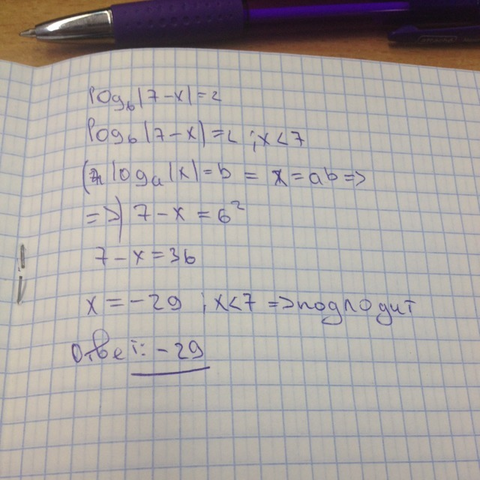 log₆|7-x|=2
log₆|7-x|=2 ; x<7
( logₐ|x|=b = x=ab =>
=>) 7-x=6²
7-x=36
x=-29 ; x<7 =>подходит
Ответ: -29